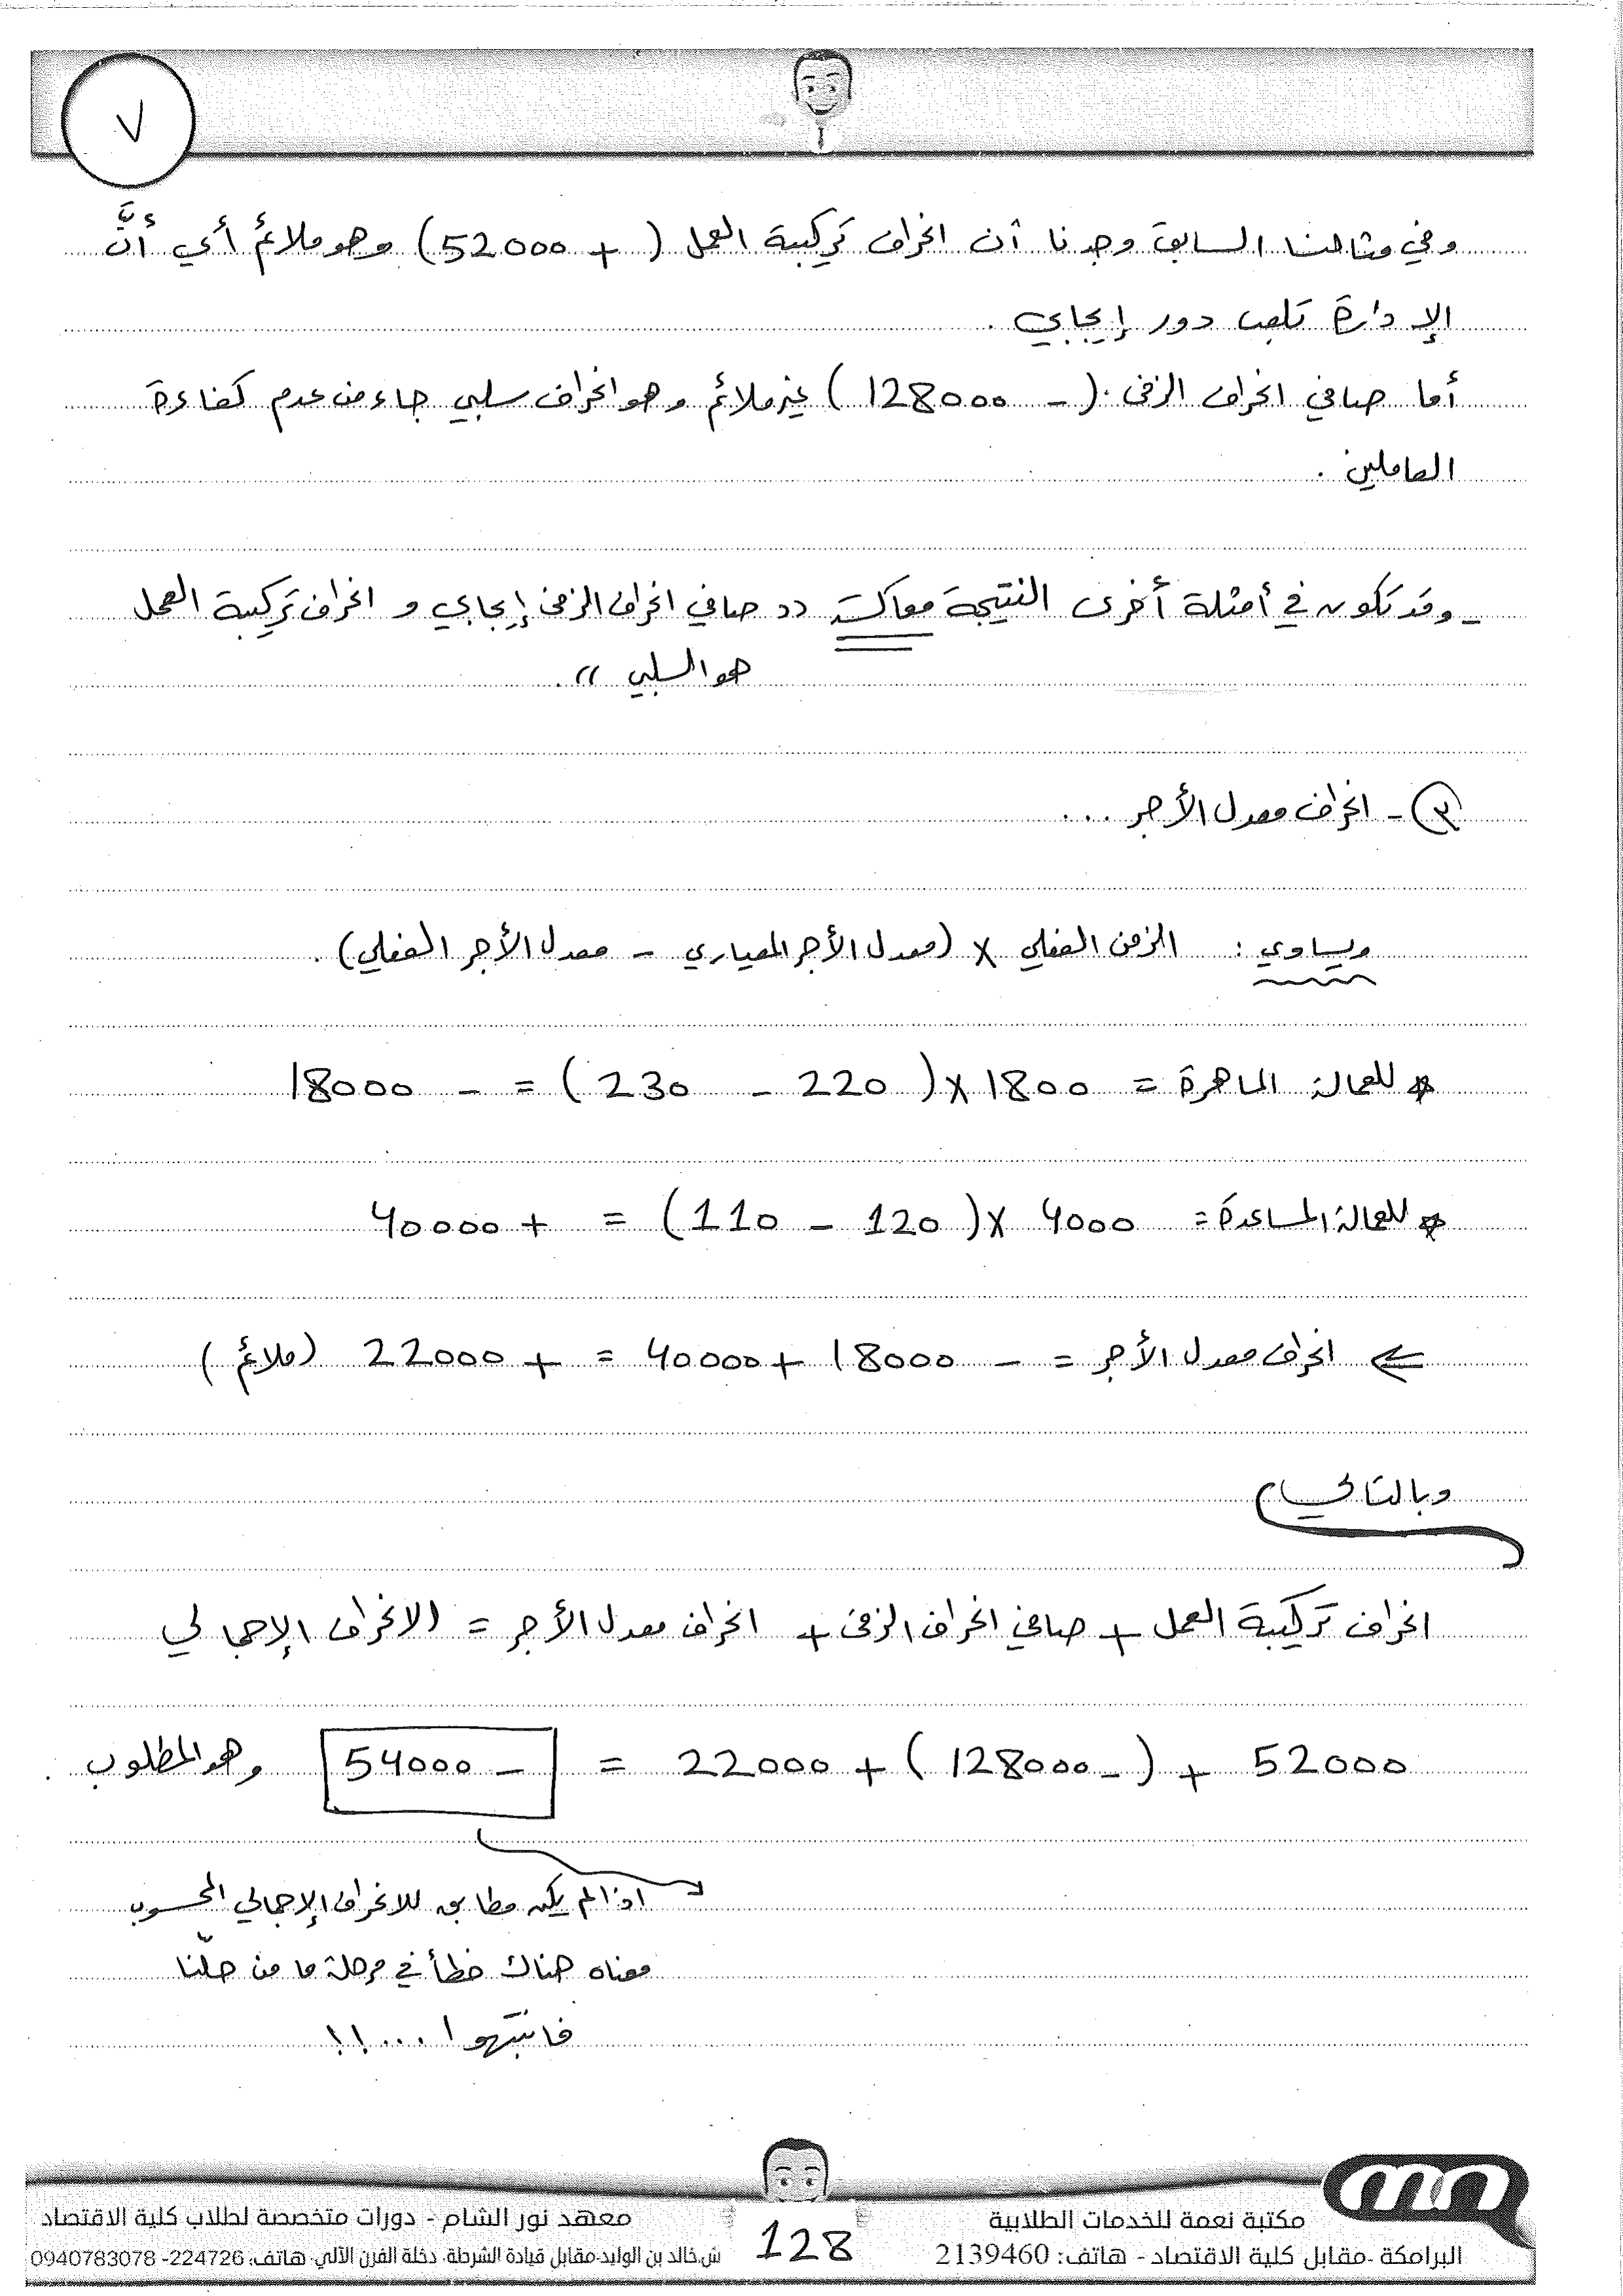 ٧
وفي مثالنا السابق وجدنا أن انحراف تركيبة العمل ( + 52000) وهو ملائم أي أنَّ
الإدارة تلعب دور إيجابي .
أما صافي انحراف الزمن ( - 128000 ) غير ملائم وهو انحراف سلبي جاء من عدم كفاءة
العاملين .
- وقد تكون في أمثلة أخرى النتيجة معاكسة (( صافي انحراف الزمن إيجابي و انحراف تركيبة العمل
هو السلبي )) .
٣ - انحراف معدل الأجر ...
ويساوي : الزمن الفعلي × (معدل الأجر المعياري - معدل الأجر الفعلي) .
* للعمالة الماهرة = 1800 × ( 220 - 230 ) = - 18000
* للعمالة المساعدة = 4000 × ( 120 - 110 ) = + 40000
⇐ انحراف معدل الأجر = - 18000 + 40000 = + 22000 (ملائم )
وبالتالي
انحراف تركيبة العمل + صافي انحراف الزمن + انحراف معدل الأجر = الانحراف الإجمالي
52000 + ( -128000 ) + 22000 = - 54000 وهو المطلوب .
اذا لم يكن مطابق للانحراف الإجمالي المحسوب
معناه هناك خطأ في مرحلة ما من حلّنا
فانتبهوا ...!!
مكتبة نعمة للخدمات الطلابية
البرامكة -مقابل كلية الاقتصاد - هاتف: 2139460
128
معهد نور الشام - دورات متخصصة لطلاب كلية الاقتصاد
ش.خالد بن الوليد-مقابل قيادة الشرطة- دخلة الفرن الآلي- هاتف: 224726- 0940783078